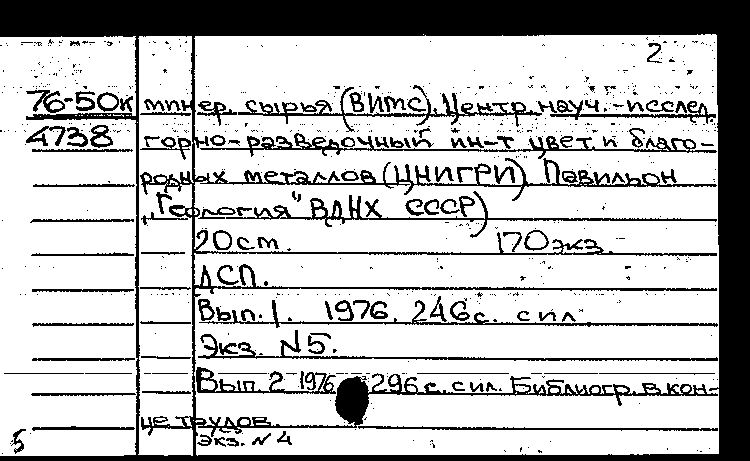 2.
76-50к минер. сырья (ВИМС). Центр. науч.-исслед.
4738 горно-разведочный ин-т цвет. и благо-
родных металлов (ЦНИГРИ). Павильон
„Геология" ВДНХ СССР)
20 см. 170 экз.
ДСП.
Вып. 1. 1976. 246 с. с ил.
Экз. N 5.
Вып. 2 1976 296 с. с ил. Библиогр. в кон-
це трудов.
5 Экз. N 4